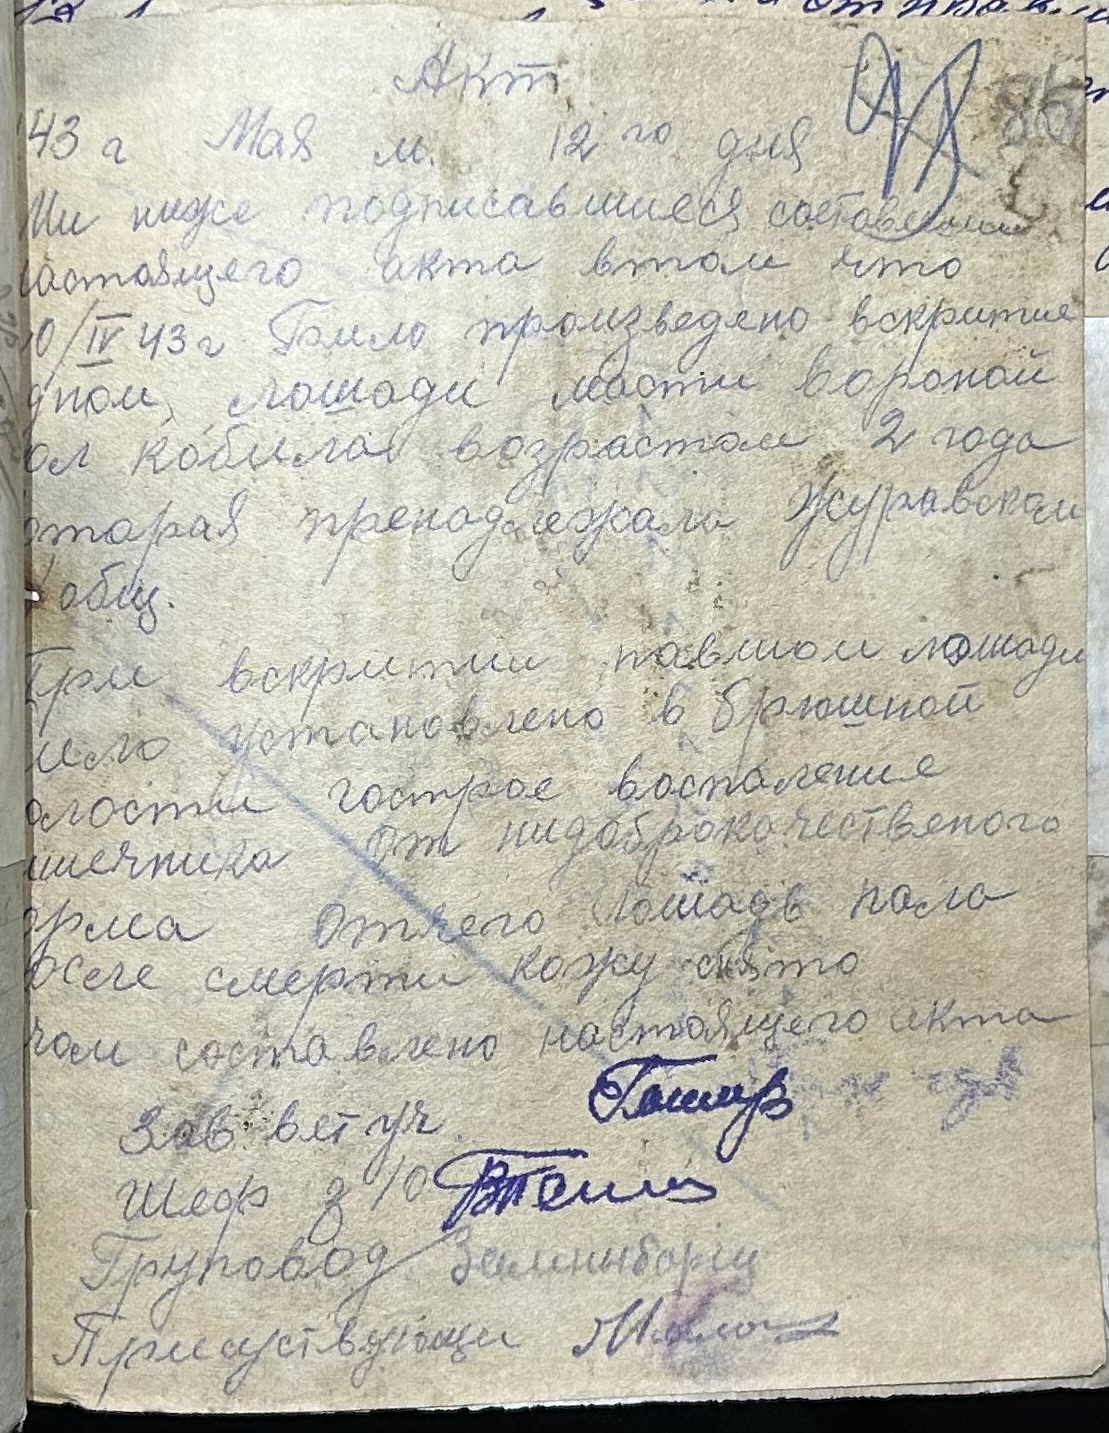 Акт
43 г Мая м. 12го дня
86
Ми ниже подписавшиеся составили
настоящего акта втом что
0/IV 43 г Било произведено вскритие
дном, лошади масти вороной
ол кобила возрастом 2 года
оторая пренадлежала Журавском
общ.
При вскритии павшом лошади
било установлено в брюшной
олости гострое воспаление
ишечника от нидоброкачественого
орма отчего лошадь пала
осле смерти кожу снято
чом составлено настоящего акта
Зав вет уч
Шеф з/о
Груповод
Присуствующи